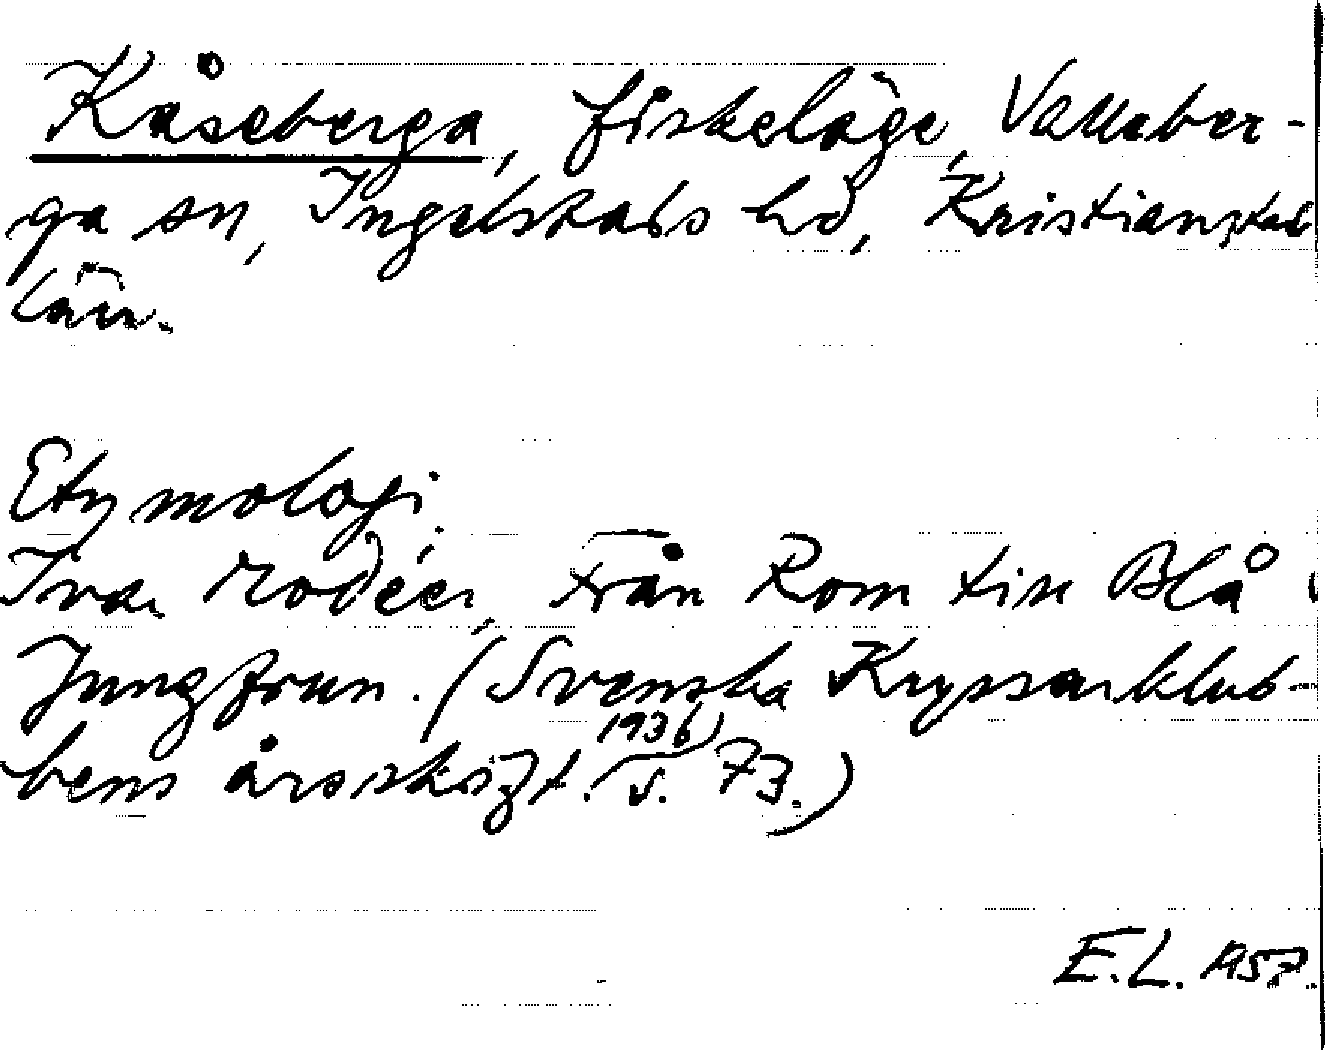 Kåseberga, fiskeläge, Valleber-
ga sn, Ingelstads hd, Kristianstads
län.
Etymologi.
Ivar Modéer, Från Rom till Blå
Jungfrun. (Svenska Kryssarklub-
bens årsskrift. 1936) s. 73.)
E.L. 1957.